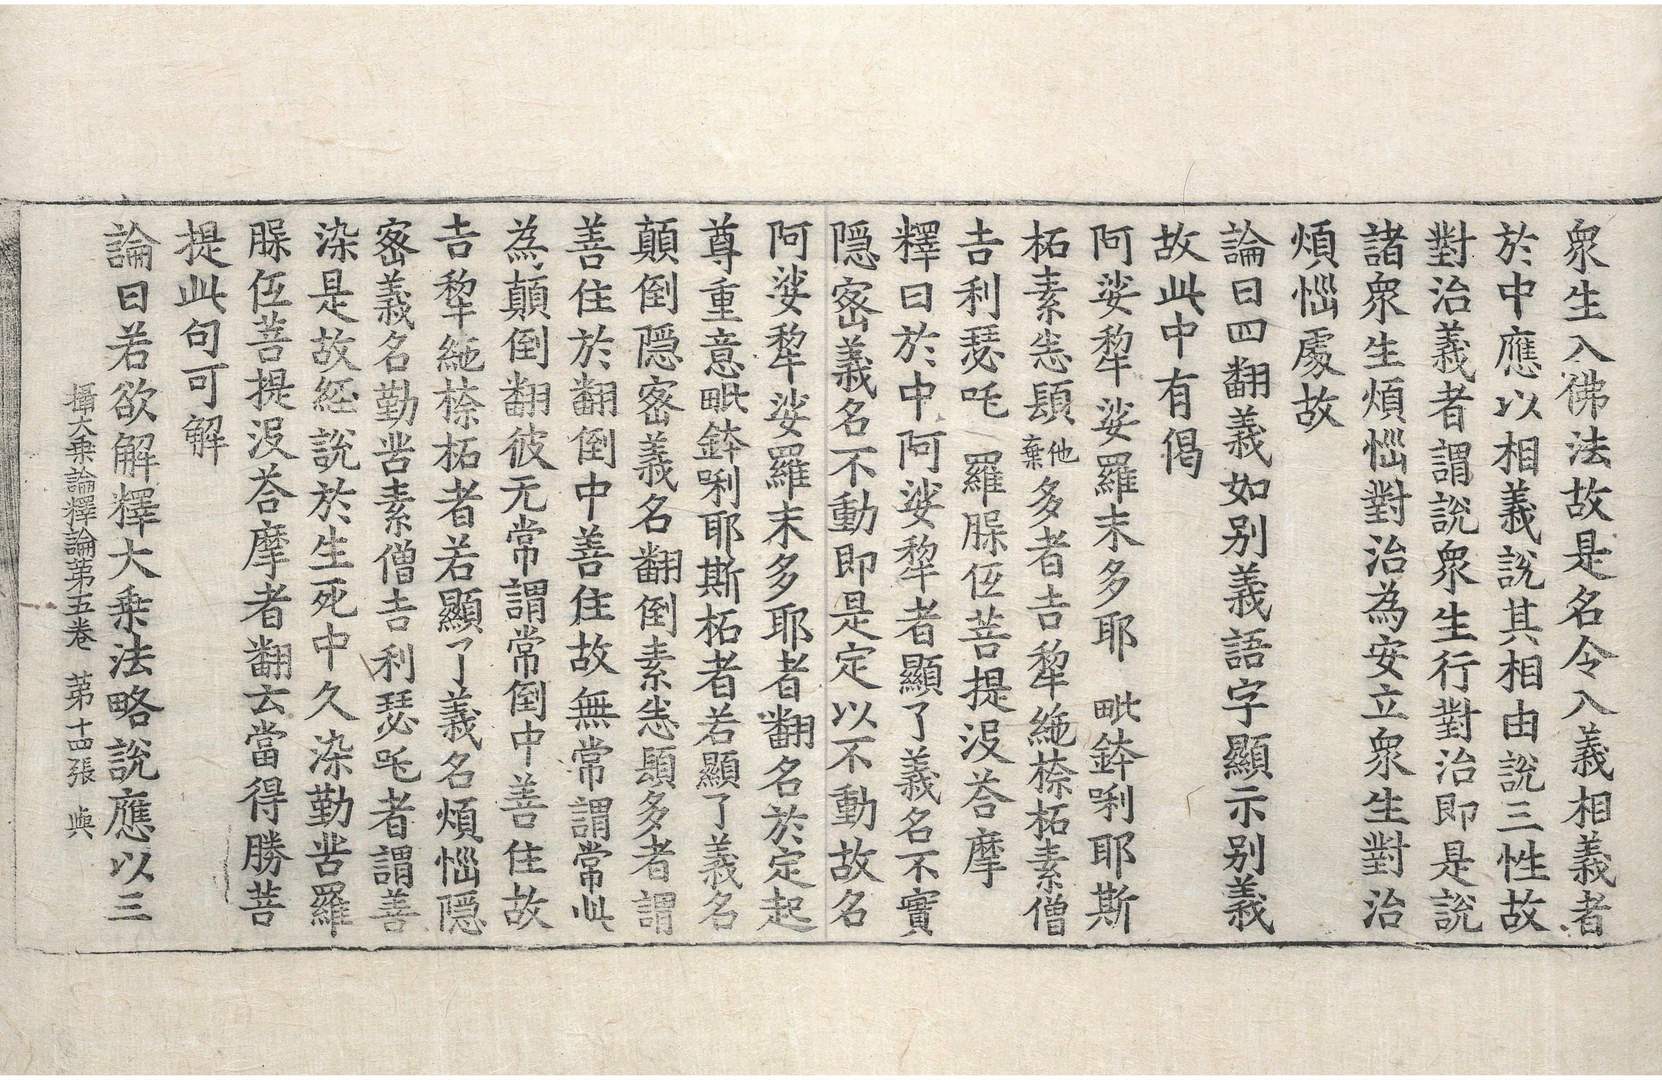 衆生入佛法故是名令入義相義者
於中應以相義說其相由說三性故
對治義者謂說衆生行對治即是說
諸衆生煩惱對治為安立衆生對治
煩惱處故
論曰四翻義如别義語字顯示别義
故此中有偈
阿娑犂娑羅末多耶 毗鉢唎耶斯
柘素悉䫂他棄多者吉犂絁㮈柘素僧
吉利瑟吒 羅脲伍菩提沒荅摩
釋曰於中阿娑犂者顯了義名不實
隱密義名不動即是定以不動故名
阿娑犂娑羅末多耶者翻名於定起
尊重意毗鉢唎耶斯柘者若顯了義名
顛倒隱密義名翻倒素悉䫂多者謂
善住於翻倒中善住故無常謂常此
為顛倒翻彼无常謂常倒中善住故
吉犂絁㮈柘者若顯了義名煩惱隱
密義名勤苦素僧吉利瑟吒者謂善
染是故經說於生死中久染勤苦羅
脲伍菩提沒荅摩者翻云當得勝菩
提此句可解
論曰若欲解釋大乗法略說應以三
攝大乗論釋論第五卷 第十四張 與